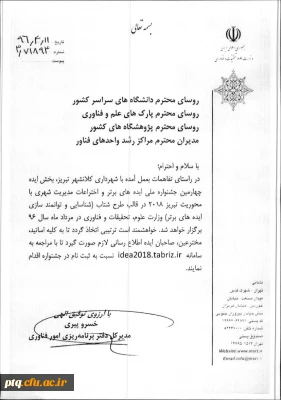 بسمه تعالی
جمهوری اسلامی ایران
وزارت علوم، تحقیقات و فناوری
تاریخ ۹۶،۴،۱۱
شماره ۳/۷۱۸۹۳
پیوست
روسای محترم دانشگاه های سراسر کشور
روسای محترم پارک های علم و فناوری
روسای محترم پژوهشگاه های کشور
مدیران محترم مراکز رشد واحدهای فناور
با سلام و احترام؛
در راستای تفاهمات بعمل آمده با شهرداری کلانشهر تبریز، بخش ایده
چهارمین جشنواره ملی ایده های برتر و اختراعات مدیریت شهری با
محوریت تبریز ۲۰۱۸ در قالب طرح شتاب (شناسایی و توانمند سازی
ایده های برتر) وزارت علوم، تحقیقات و فناوری در مرداد ماه سال ۹۶
برگزار خواهد شد. خواهشمند است ترتیبی اتخاذ گردد تا به کلیه اساتید،
مخترعین، صاحبان ایده اطلاع رسانی لازم صورت گیرد تا با مراجعه به
سامانه idea2018.tabriz.ir نسبت به ثبت نام در جشنواره اقدام
نمایند.
با آرزوی توفیق الهی
خسرو پیری
مدیرکل دفتر برنامه‌ریزی امور فناوری
نشانی
تهران - شهرک قدس
میدان صنعت، خیابان
خوردین، خیابان هرمزان
نبش خیابان پیروزان جنوبی
صندوق پستی
ptq.cfu.ac.ir